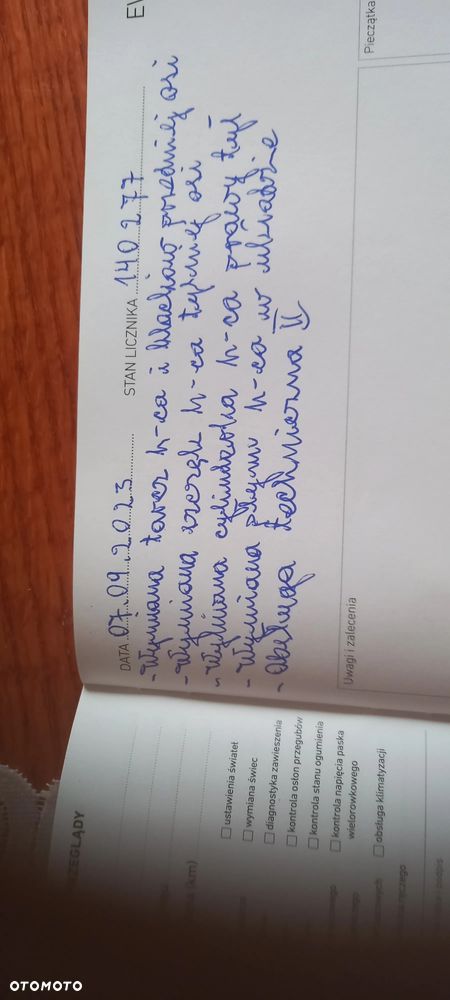 DATA 07.09.2023 STAN LICZNIKA 140277
- Wymiana tarcz h-ca i klocków przedniej osi
- Wymiana szczęk h-ca tylniej osi
- Wymiana cylinderka h-ca prawy tył
- Wymiana płynu h-ca w układzie
- Obsługa techniczna II
Uwagi i zalecenia
Pieczątka
ustawienia świateł
wymiana świec
diagnostyka zawieszenia
kontrola osłon przegubów
kontrola stanu ogumienia
kontrola napięcia paska
wielorowkowego
obsługa klimatyzacji
(km)
OTOMOTO